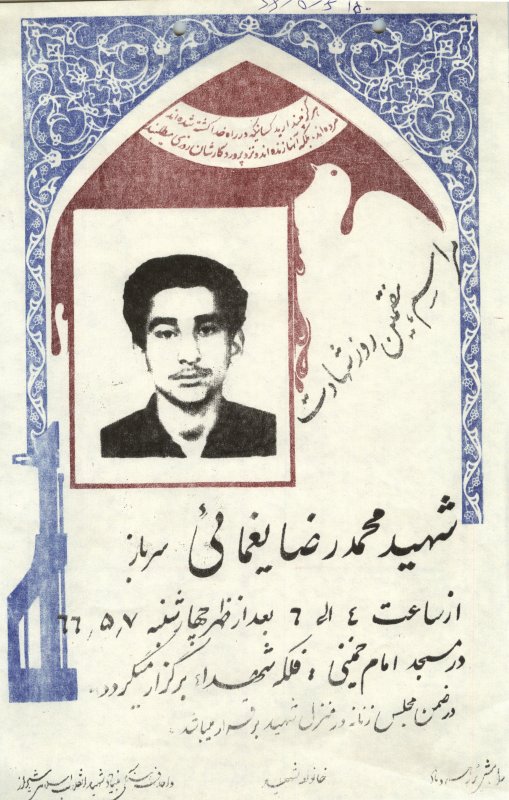 هرگز مپندارید کسانیکه در راه خدا کشته شده‌اند
مرده‌اند بلکه آنها زنده‌اند و نزد پروردگارشان روزی میطلبند
مراسم هفتمین روز شهادت
شهید محمد رضا یغمائی سرباز
از ساعت ٤ الی ٦ بعد از ظهر چهارشنبه ٦٦٫٥٫٧
در مسجد امام خمینی فلکه شهداء برگزار میگردد.
در ضمن مجلس زنانه در منزل شهید برقرار میباشد.
خانواده شهید
واحد فرهنگی بنیاد شهید انقلاب اسلامی شیراز